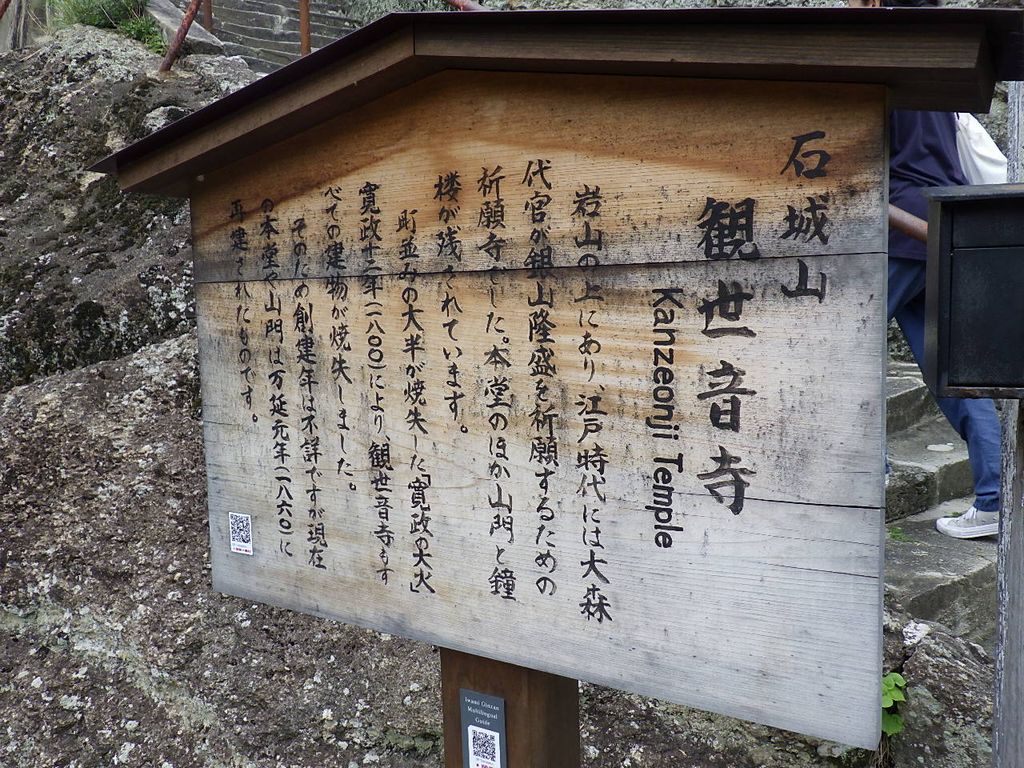 石城山
観世音寺
Kanzeonji Temple
岩山の上にあり、江戸時代には大森
代官が銀山隆盛を祈願するための
祈願寺でした。本堂のほか山門と鐘
楼が残されています。
町並みの大半が焼失した「寛政の大火」
寛政十二年(一八〇〇)により、観世音寺もす
べての建物が焼失しました。
そのため創建年は不詳ですが現在
の本堂や山門は万延元年(一八六〇)に
再建されたものです。
Iwami Ginzan
Multilingual
Guide